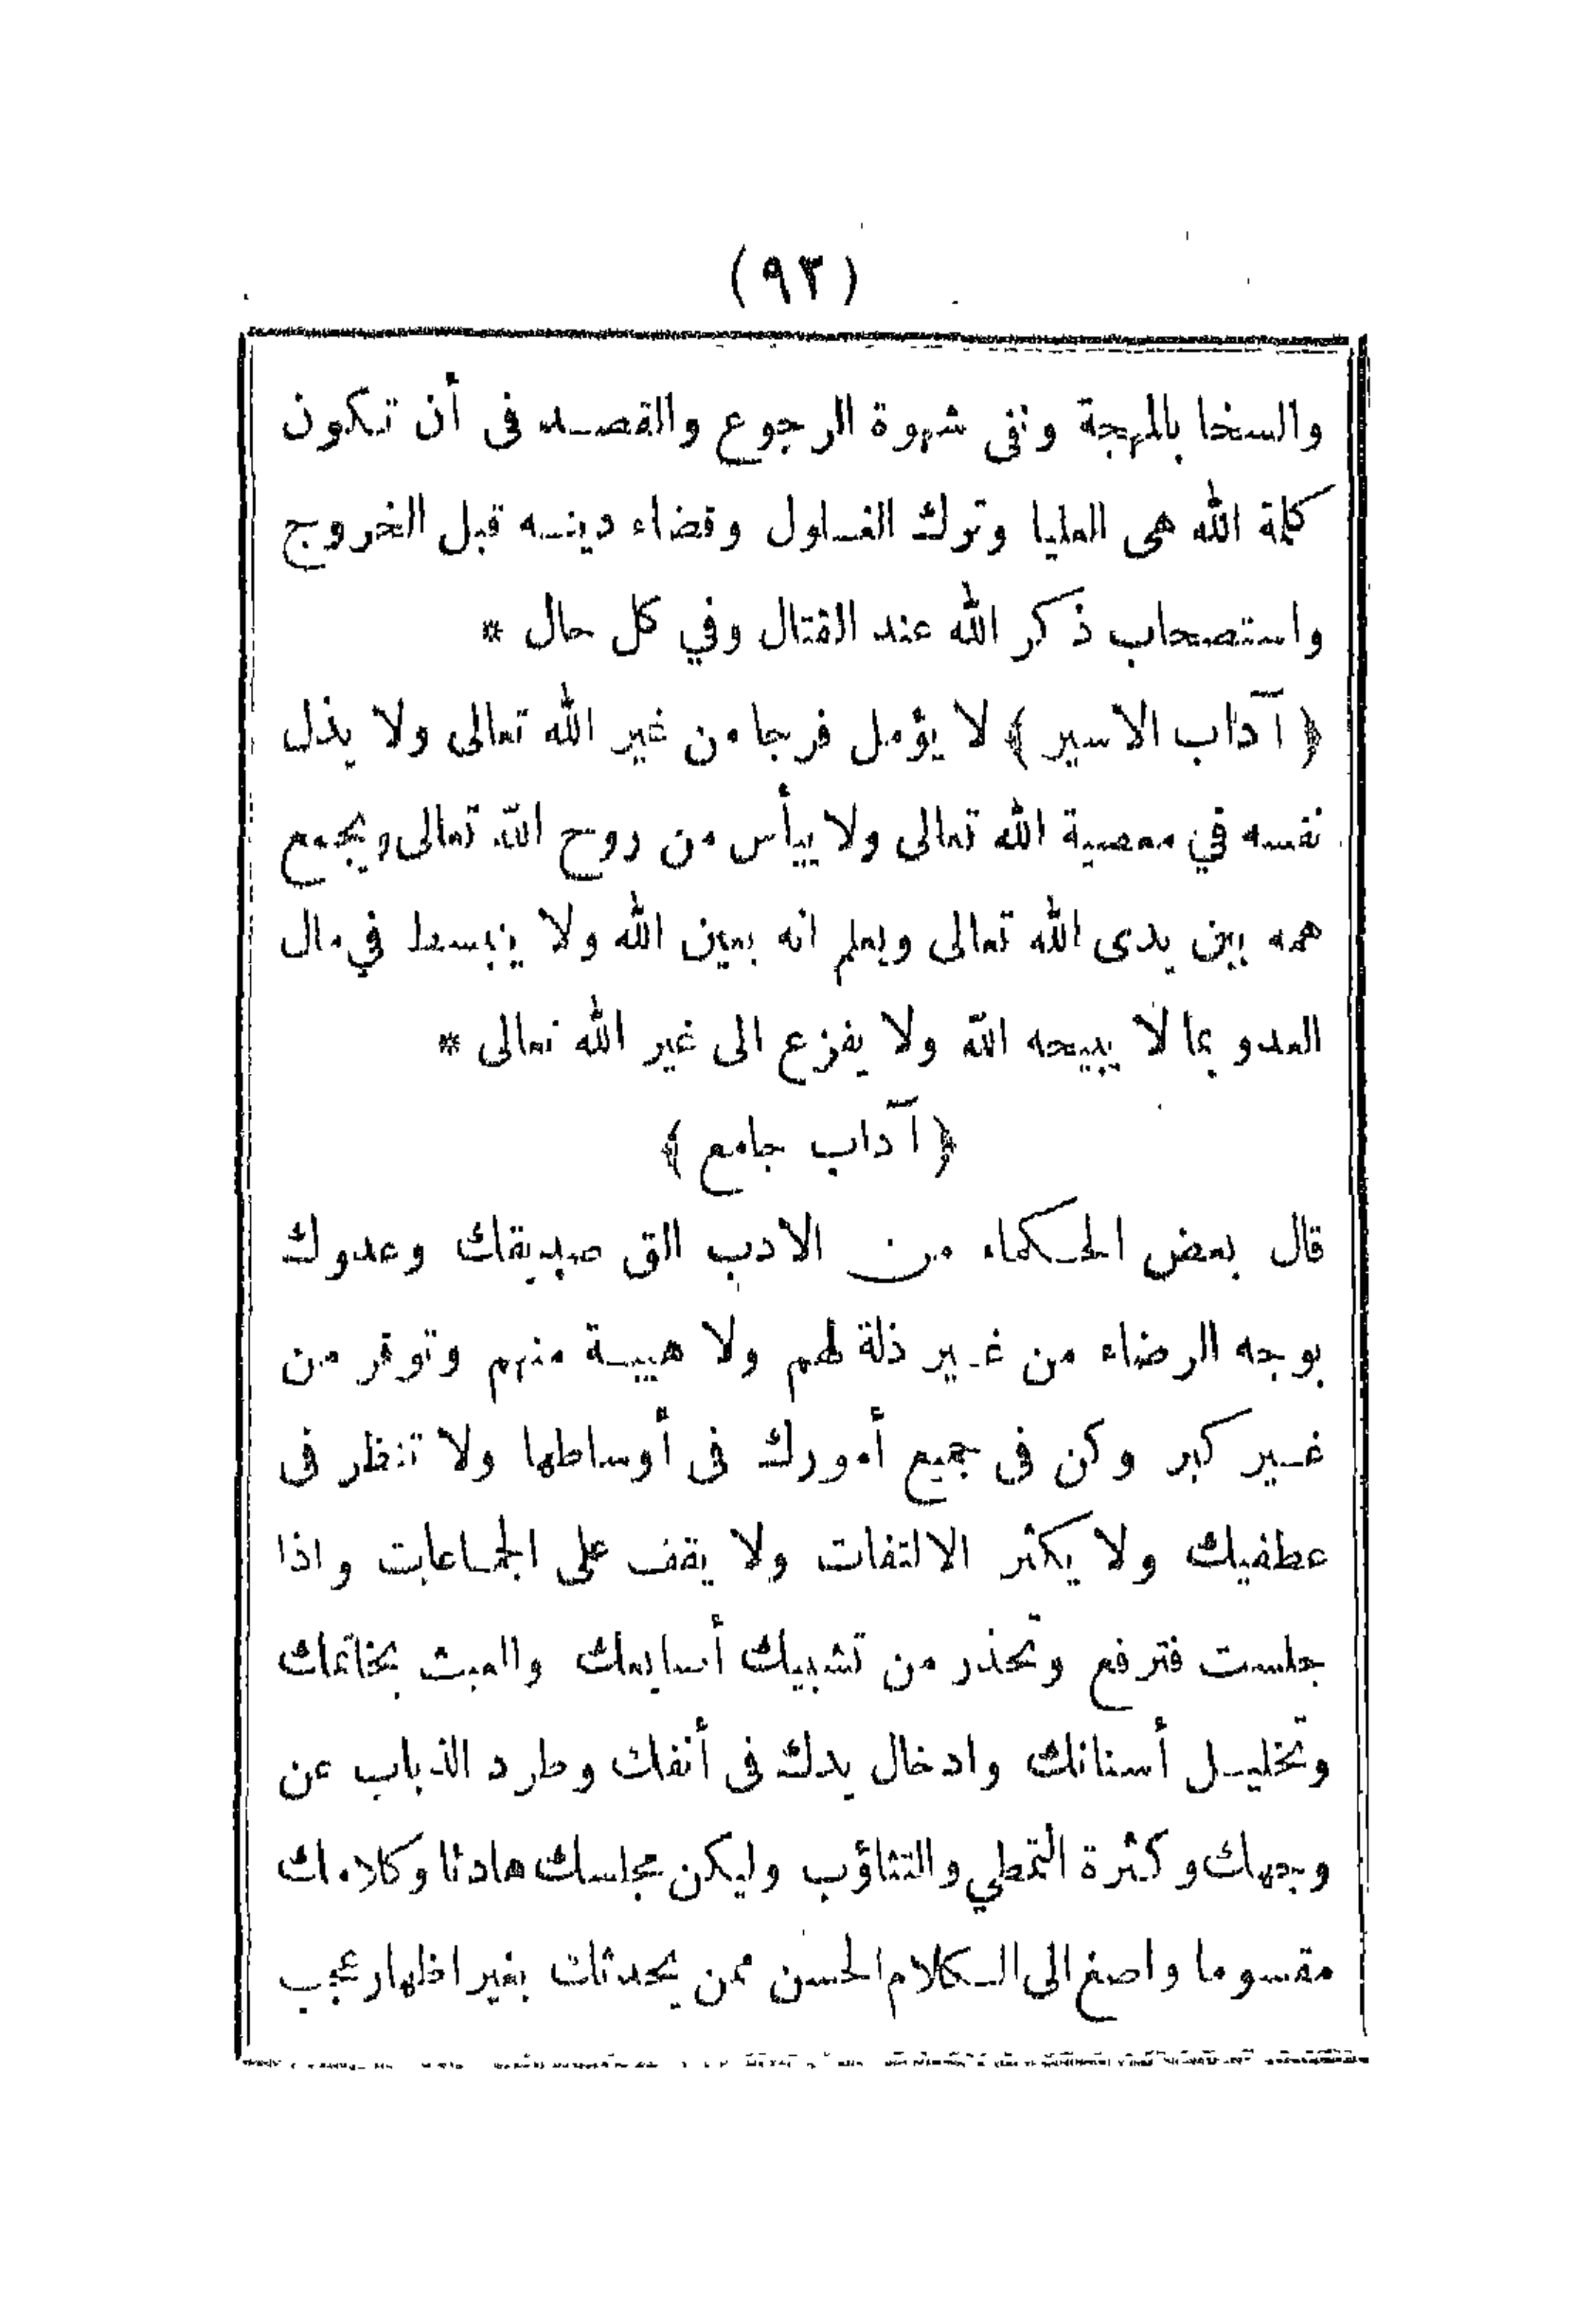 (٩٣)
والسخا بالمهجة ونفى شهوة الرجوع والقصد فى أن تكون
كلمة الله هى العليا وترك الغلول وقضاء دينه قبل الخروج
واستصحاب ذكر الله عند القتال وفي كل حال *
﴿ آداب الاسير ﴾ لا يؤمل فرجا من غير الله تعالى ولا يذل
نفسه في معصية الله تعالى ولا ييأس من روح الله تعالى ويجمع
همه بين يدى الله تعالى ويعلم انه بعين الله ولا ينبسط في مال
العدو بما لا يبيحه الله ولا يفزع الى غير الله تعالى *
﴿ آداب جامع ﴾
قال بعض الحكماء من الادب الق صديقك وعدوك
بوجه الرضاء من غير ذلة لهم ولا هيبة منهم وتوقر من
غير كبر وكن فى جميع أمورك فى أوساطها ولا تنظر فى
عطفيك ولا يكثر الالتفات ولا يقف على الجماعات واذا
جلست فترفع وتحذر من تشبيك أصابعك والعبث بخاتمك
وتخليل أسنانك وادخال يدك فى أنفك وطرد الذباب عن
وجهك وكثرة التمطي والتثاؤب وليكن مجلسك هادئا وكلامك
مقسوما واصغ الى الكلام الحسن ممن يحدثك بغير اظهار عجب